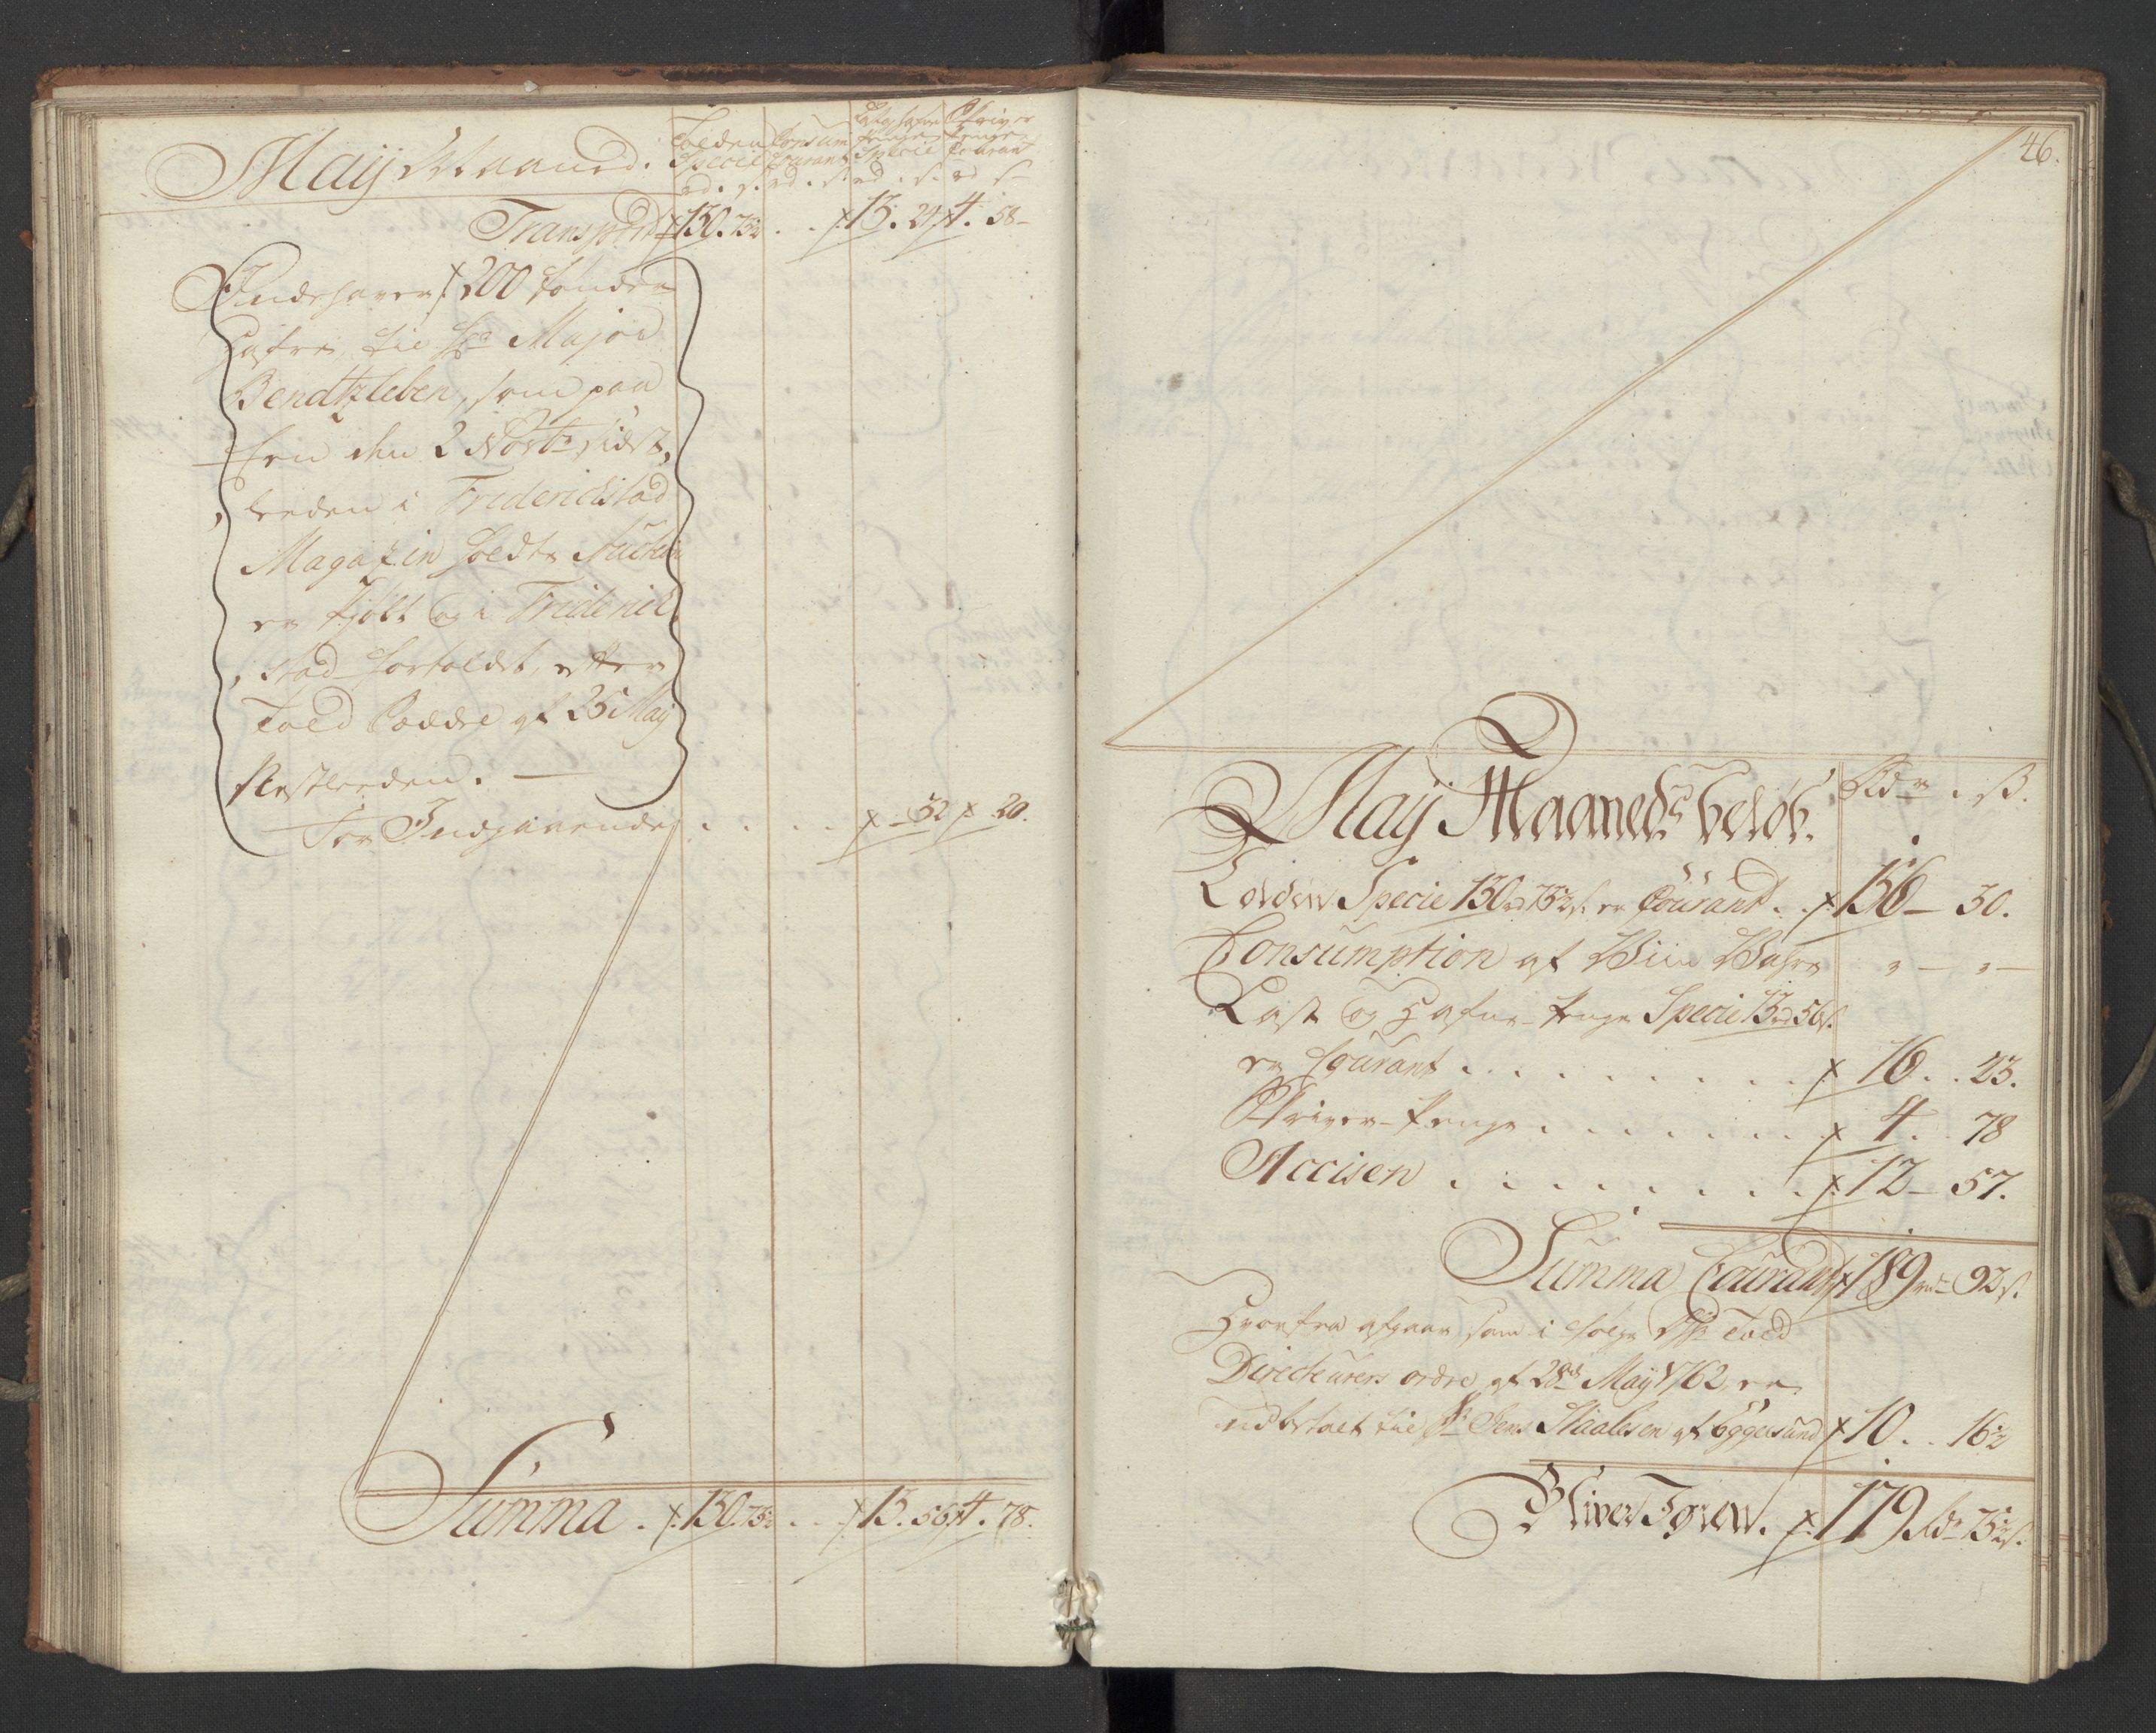 Maij Maaned.
Tolden Specie rd. s.
Consum Courant rd. s.
Last og Hafne Penge Specie rd. s.
Skriver Penge Courant rd. s.
Transport 130. 73½ . . 13. 24 4. 58-
Indehaver 200 tønder
Hafre, til Hr Major
Bendtzleben, som paa
den 2 Novbr sidst,
leeden i Frederichstad
Magazin holdte Auction
er kjøbt og i Friderich,
stad fortoldet, efter
Told Sædde af 25 Maij
Nestleeden. —
For Indgaaende . . . . - 32 20.
Summa . 130. 73½ . . 13. 56 4. 78.
46.
Maij Maaneds beløb. Rdr . s.
Tolden Specie 130 rd 73½ s. er Courant . . 156 - 30.
Consumption af Viin Vahre " - " -
Last og Hafne-Penge Specie 13 rd 56 s.
er Courant . . . . . . . . 16 . . 23.
Skriver-Penge . . . . . . . 4 . . 78
Accisen . . . . . . . . 12 - 57.
Summa Courant 189 rdr 92 s.
Hvorfra afgaar som i følge Hr Told
Directeurens ordre af 28de Maij 1762 er
udbetalt til Sr Jens Staalesen af Eggersund 10 . . 16½
Bliver Igien. 179 Rdr 75½ s.